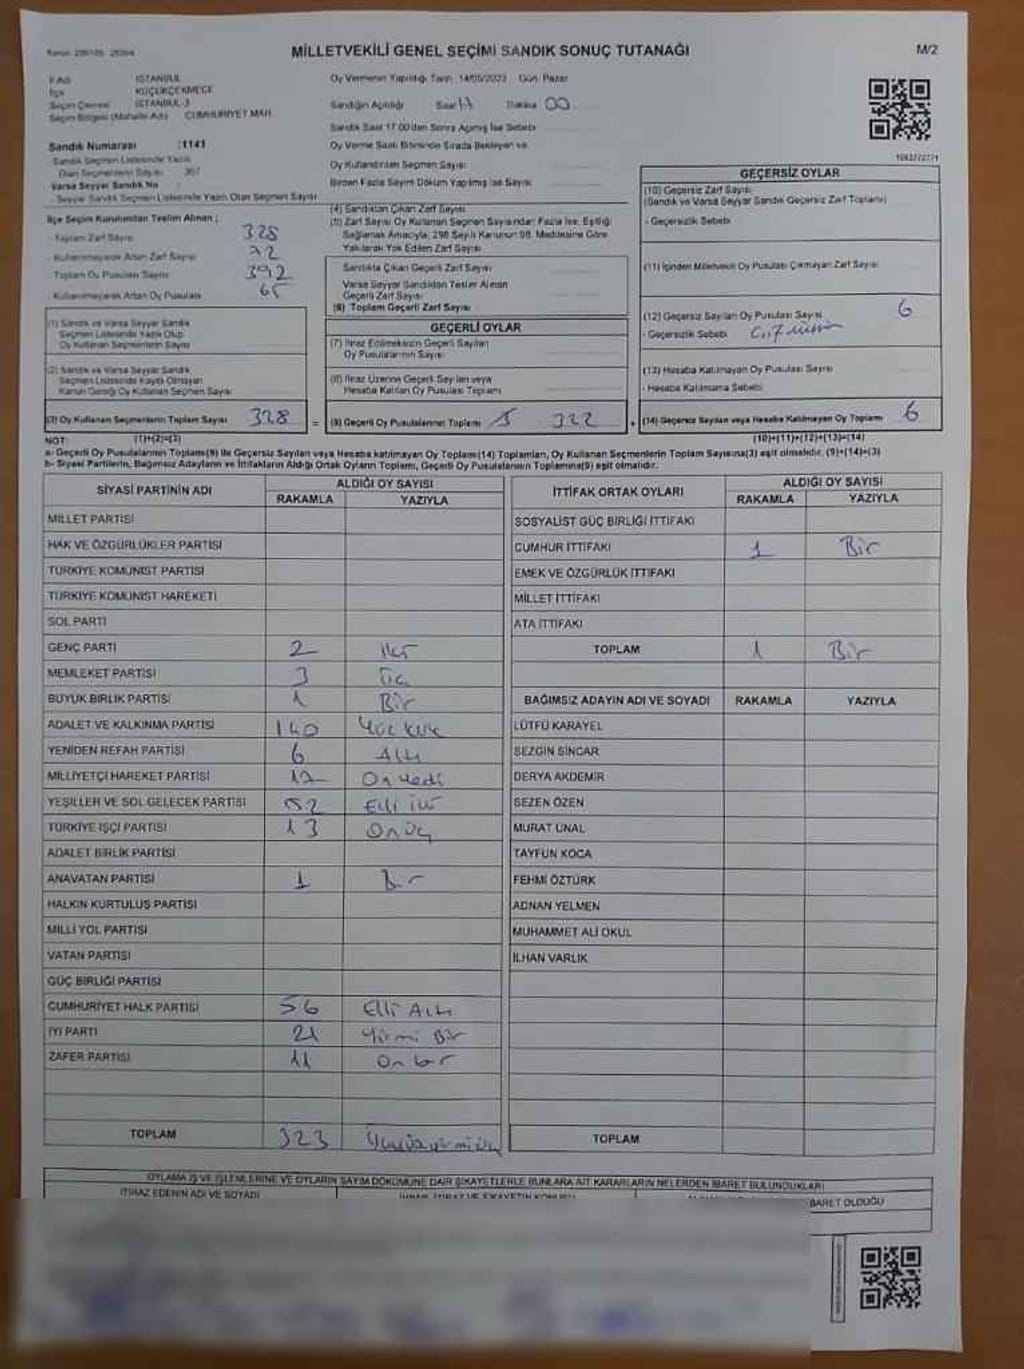 MİLLETVEKİLİ GENEL SEÇİMİ SANDIK SONUÇ TUTANAĞI
M/2
İl Adı İSTANBUL
İlçe KÜÇÜKÇEKMECE
Seçim Çevresi İSTANBUL-3
Seçim Bölgesi (Mahalle Adı) CUMHURİYET MAH.
Sandık Numarası :1141
Sandık Seçmen Listesinde Yazılı
Olan Seçmenlerin Sayısı 367
Varsa Seyyar Sandık No
Seyyar Sandık Seçmen Listesinde Yazılı Olan Seçmen Sayısı
İlçe Seçim Kurulundan Teslim Alınan :
Toplam Zarf Sayısı 328
Kullanılmayarak Artan Zarf Sayısı
Toplam Oy Pusulası Sayısı 392
Kullanılmayarak Artan Oy Pusulası 65
(1) Sandık ve Varsa Seyyar Sandık
Seçmen Listesinde Yazılı Olup
Oy Kullanan Seçmenlerin Sayısı
(2) Sandık ve Varsa Seyyar Sandık
Seçmen Listesinde Kaydı Olmayan
Kanun Gereği Oy Kullanan Seçmen Sayısı
(3) Oy Kullanan Seçmenlerin Toplam Sayısı 328
Oy Vermenin Yapıldığı Tarih : 14/05/2023 Gün: Pazar
Sandığın Açıldığı Saat 17 Dakika 00
Sandık Saat 17.00'den Sonra Açılmış İse Sebebi
Oy Verme Saati Bitiminde Sırada Bekleyen ve
Oy Kullandırılan Seçmen Sayısı
Birden Fazla Sayım Döküm Yapılmış İse Sayısı
(4) Sandıktan Çıkan Zarf Sayısı
(5) Zarf Sayısı Oy Kullanan Seçmen Sayısından Fazla İse, Eşitliği
Sağlamak Amacıyla, 298 Sayılı Kanunun 98. Maddesine Göre
Yakılarak Yok Edilen Zarf Sayısı
Sandıkta Çıkan Geçerli Zarf Sayısı
Varsa Seyyar Sandıktan Teslim Alınan
Geçerli Zarf Sayısı
(6) Toplam Geçerli Zarf Sayısı
GEÇERLİ OYLAR
(7) İtiraz Edilmeksizin Geçerli Sayılan
Oy Pusulalarının Sayısı
(8) İtiraz Üzerine Geçerli Sayılan veya
Hesaba Katılan Oy Pusulası Toplamı
= (9) Geçerli Oy Pusulalarının Toplamı 322
1082772771
GEÇERSİZ OYLAR
(10) Geçersiz Zarf Sayısı
(Sandık ve Varsa Seyyar Sandık Geçersiz Zarf Toplamı)
- Geçersizlik Sebebi
(11) İçinden Milletvekili Oy Pusulası Çıkmayan Zarf Sayısı
(12) Geçersiz Sayılan Oy Pusulası Sayısı 6
- Geçersizlik Sebebi
(13) Hesaba Katılmayan Oy Pusulası Sayısı
- Hesaba Katılmama Sebebi
+ (14) Geçersiz Sayılan veya Hesaba Katılmayan Oy Toplamı 6
NOT: (1)+(2)=(3) (10)+(11)+(12)+(13)=(14)
a- Geçerli Oy Pusulalarının Toplamı(9) ile Geçersiz Sayılan veya Hesaba katılmayan Oy Toplamı(14) Toplamları, Oy Kullanan Seçmenlerin Toplam Sayısına(3) eşit olmalıdır. (9)+(14)=(3)
b- Siyasi Partilerin, Bağımsız Adayların ve İttifakların Aldığı Ortak Oyların Toplamı, Geçerli Oy Pusulalarının Toplamına(9) eşit olmalıdır.
SİYASİ PARTİNİN ADI ALDIĞI OY SAYISI
RAKAMLA YAZIYLA
MİLLET PARTİSİ
HAK VE ÖZGÜRLÜKLER PARTİSİ
TÜRKİYE KOMÜNİST PARTİSİ
TÜRKİYE KOMÜNİST HAREKETİ
SOL PARTİ
GENÇ PARTİ 2 iki
MEMLEKET PARTİSİ 3 Üç
BÜYÜK BİRLİK PARTİSİ 1 Bir
ADALET VE KALKINMA PARTİSİ 140 Yüz kırk
YENİDEN REFAH PARTİSİ 6 Altı
MİLLİYETÇİ HAREKET PARTİSİ 17 On yedi
YEŞİLLER VE SOL GELECEK PARTİSİ 52 Elli iki
TÜRKİYE İŞÇİ PARTİSİ 13 Onüç
ADALET BİRLİK PARTİSİ
ANAVATAN PARTİSİ 1 Bir
HALKIN KURTULUŞ PARTİSİ
MİLLİ YOL PARTİSİ
VATAN PARTİSİ
GÜÇ BİRLİĞİ PARTİSİ
CUMHURİYET HALK PARTİSİ 56 Elli Altı
İYİ PARTİ 21 Yirmi Bir
ZAFER PARTİSİ 11 Onbir
TOPLAM 323 Üçyüzyirmiüç
İTTİFAK ORTAK OYLARI ALDIĞI OY SAYISI
RAKAMLA YAZIYLA
SOSYALİST GÜÇ BİRLİĞİ İTTİFAKI
CUMHUR İTTİFAKI 1 Bir
EMEK VE ÖZGÜRLÜK İTTİFAKI
MİLLET İTTİFAKI
ATA İTTİFAKI
TOPLAM 1 Bir
BAĞIMSIZ ADAYIN ADI VE SOYADI RAKAMLA YAZIYLA
LÜTFÜ KARAYEL
SEZGİN SİNCAR
DERYA AKDEMİR
SEZEN ÖZEN
MURAT ÜNAL
TAYFUN KOCA
FEHMİ ÖZTÜRK
ADNAN YELMEN
MUHAMMET ALİ OKUL
İLHAN VARLIK
TOPLAM
OYLAMA İŞ VE İŞLEMLERİNE VE OYLARIN SAYIM DÖKÜMÜNE DAİR ŞİKAYETLERLE BUNLARA AİT KARARLARIN NELERDEN İBARET BULUNDUKLARI
İTİRAZ EDENİN ADI VE SOYADI
BARET OLDUĞU